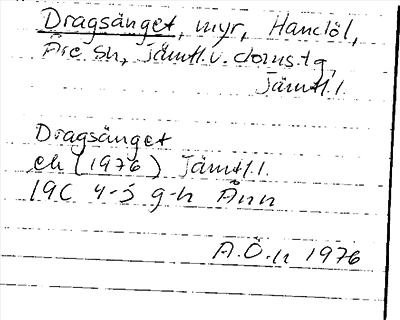 Dragsänget, myr, Handöl,
Åre sn, Jämtl.v. doms.tg,
Jämtl.l.
Dragsänget
ek (1976) Jämtl.l.
19C 4-5 g-h Ånn
A.Ö.n 1976